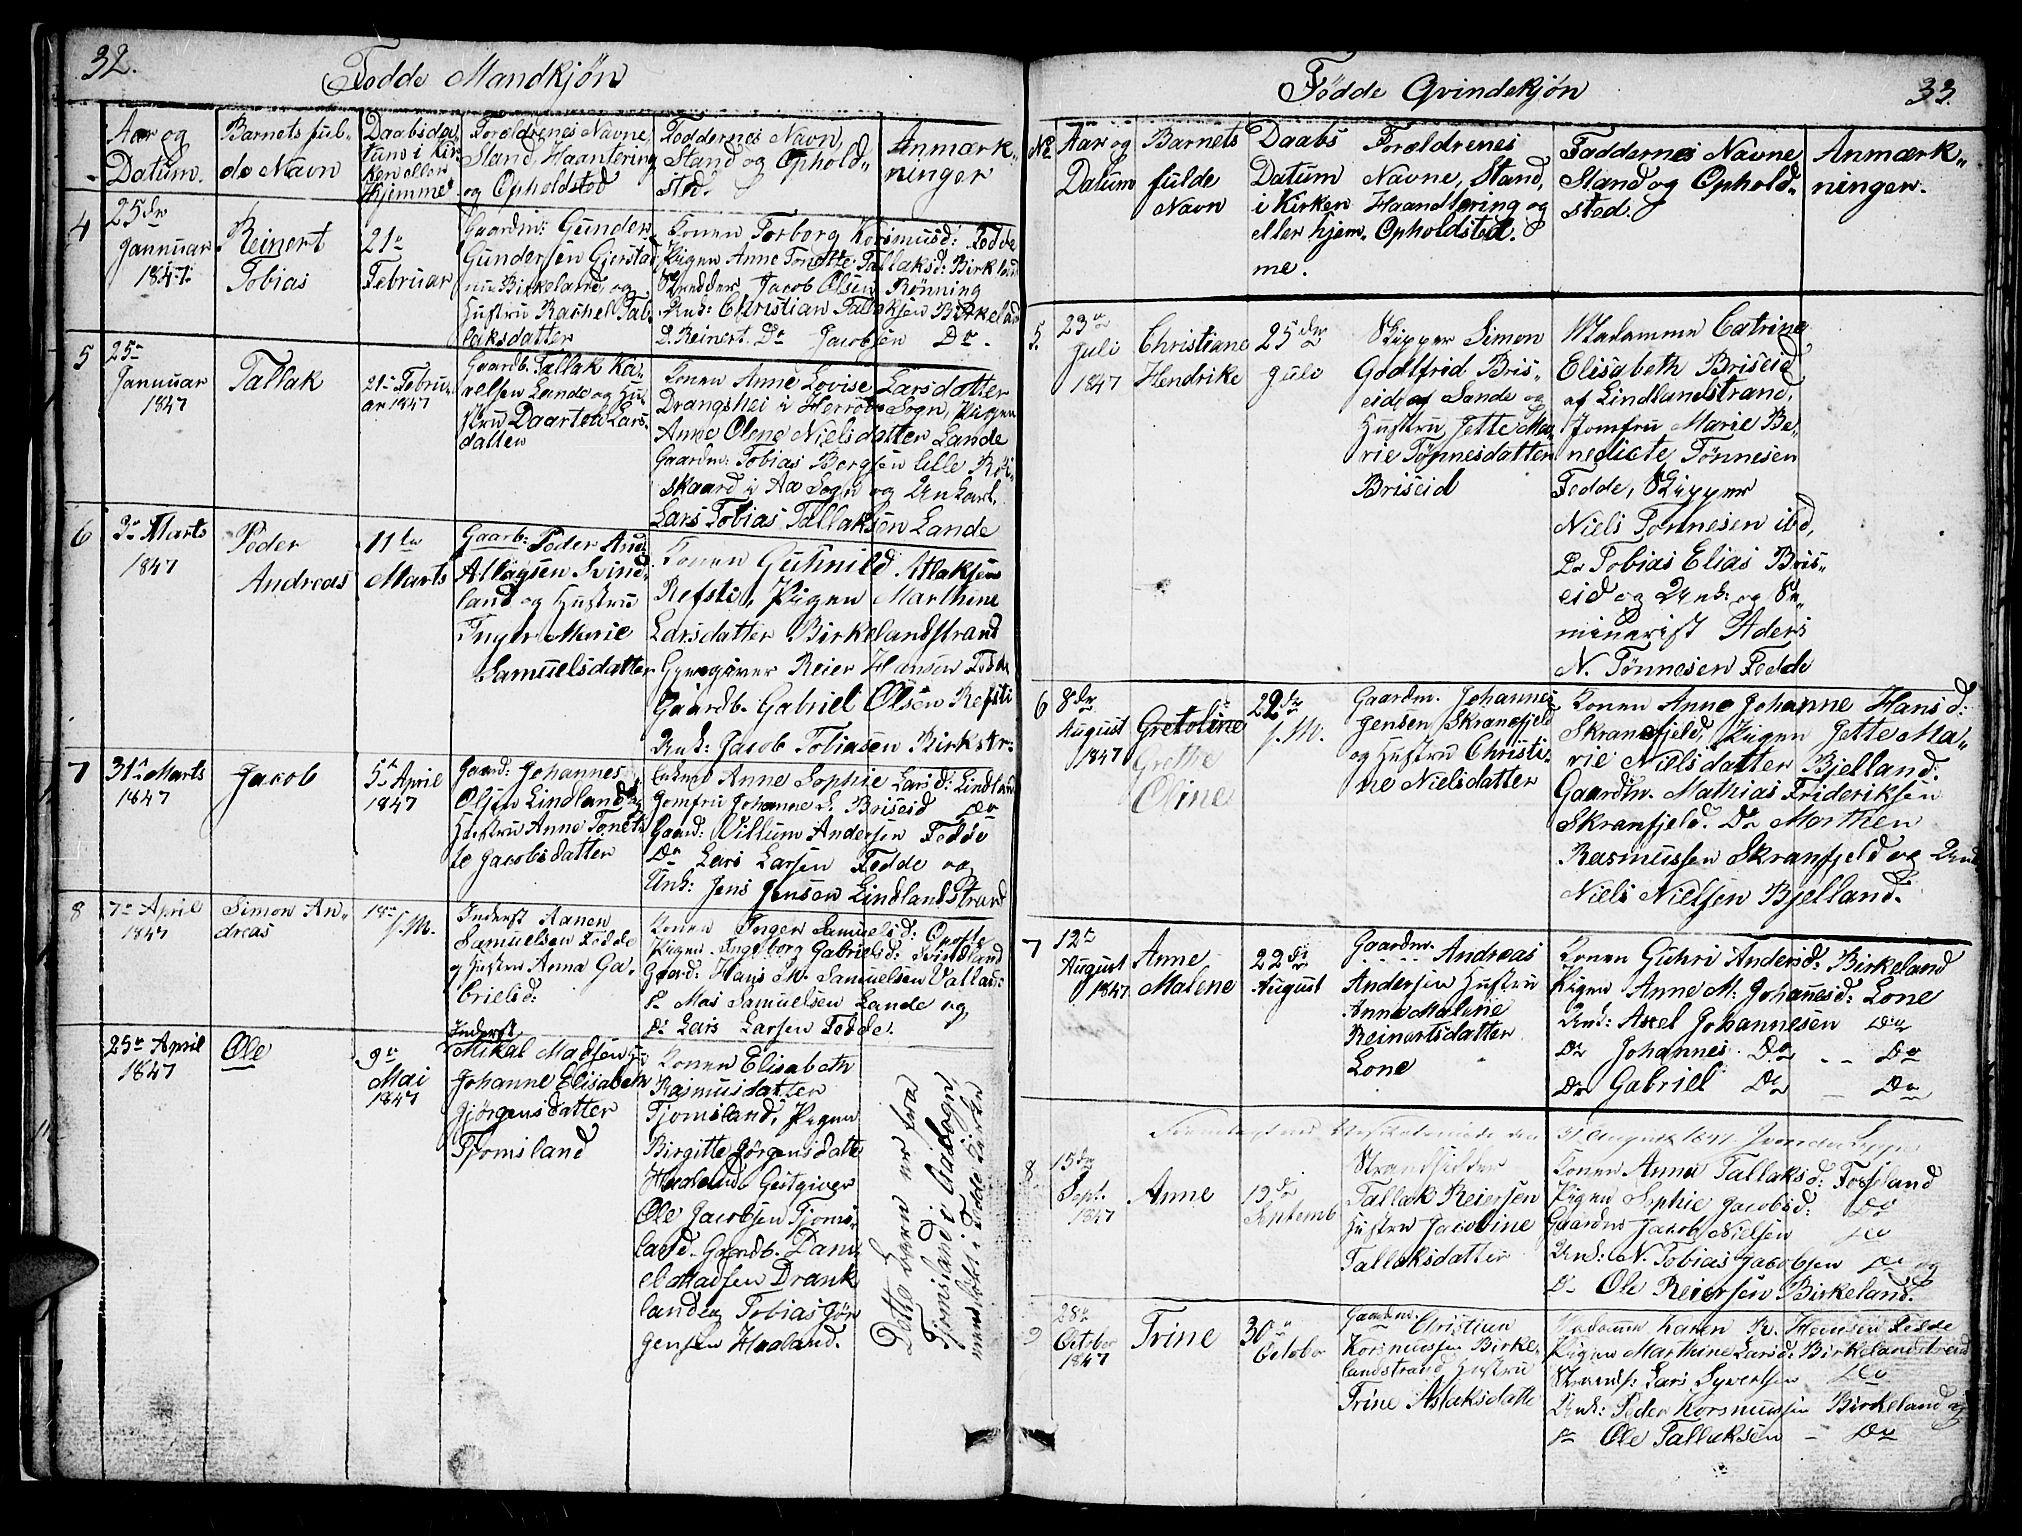 32.
Fødde Mandkjøn
Aar og
Datum.
Barnets ful-
de Navn
Daabsda-
tum i Kir-
ken eller
Hjemme
Forældrenes Navne,
Stand, Haantering
og Opholdsted
Faddernes Navn,
Stand og Ophold-
sted.
Anmærk-
ninger
4
25de
Januar
1847.
Reinert
Tobias
21de
Februar
Gaardm: Gunder
Gundersen Gjerstad
Birkeland, og
Hustru Rachel Tal-
laksdatter
Konen Torborg Korsmusd: Fedde
Pigen Anne Tonette Tallaksd: Birkland
Jacob Olsen Rönning
Unk: Christian Tallaksen Birkeland
D. Reinert Do Jacobsen Do.
5
25de
Januar
1847
Tallak
21de Febru-
ar 1847
Gaardb. Tallak Ka-
relsen Lande og Hu-
stru Daarthea Lars-
datter
Konen Anne Lovise Larsdatter
Drangshei i Herrøe Sogn, Pigen
Anne Olene Nielsdatter Lande
Gaardm: Tobias Bergsen lille Røi-
skaard i Aa Sogn og Unkarl
Lars Tobias Tallaksen Lande
6
3de Marts
1847
Peder
Andreas
11te
Marts
Gaardb: Peder And:
Atlagsen Svind-
land og Hustru
Inger Marie
Samuelsdatter
Konen Guhnild Atlaksen
Refsti, Pigen Marthine
Larsdatter Birkelandstrand
Gjæstgiver Reier Hansen Fedde
Gaardb. Gabriel Olsen Refsti
Unk: Jacob Tobiasen Birkstr:
7
31te Marts
1847
Jacob
5te April
1847
Gaard: Johannes
Olsen Lindland og
Hustru Anne Tonet-
te Jacobsdatter
Enken Anne Sophie Larsd: Lindland
Jomfru Johanne S. Briseid Do
Gaard: Villum Andersen Fedde
Do Lars Larsen Fedde og
Unk: Jens Jensen Lindlandstrand
8
7de April
1847
Simon An-
dreas
18de
s. M.
Inderst Aanen
Samuelsen Fedde
og Hustru Anna Ga-
brielsd:
Konen Inger Samuelsd: Opofte
Pigen Ingeborg Gabrielsd: Svindland
Gaard: Hans M. Samuelsen Vatland
D. Mas Samuelsen Lande og
D: Lars Larsen Fedde.
25de April
1847
Ole
9de
Mai
1847
Inderst
Mikal Madsen H:
Johanne Elisabeth
Gjörgensdatter
Fjomsland
Konen Elisabeth
Rasmusdatter
Fjomsland, Pigen
Birgitte Jørgensdatte
Haaland. Gestgiver
Ole Jacobsen Fjoms-
land. Gaardb. Dani-
el Madsen Drank
land og Tobias Jør
gensen Haaland.
Dette Barn er fra
Fjomsland i Qvindsogn,
men döbt i Fedde Kirke
Fødde Qvindekjön
33.
No
Aar og
Datum
Barnets
fulde
Navn
Daabs
Datum
i Kirken
eller hjem-
me.
Forældrenes
Navne, Stand,
Haandtering og
Opholdsted.
Faddernes Navne
Stand og Ophold-
sted.
Anmærk-
ninger.
5.
23de
Juli
1847
Christiane
Hendrike
25de
Juli
Skipper Simon
Godtfrid Bris-
eid, af Sande og
Hustru Jette Ma-
rie Tønnesdatter
Briseid
Madamme Catrine
Elisabeth Briseid
af Lindlandstrand,
Jomfru Marie Be-
nedicte Tönnesen
Fedde, Skipper
Niels Tönnesen ibd,
Do Tobias Elias Bris-
eid og Unk: og Se-
minarist Aders
N. Tönnesen Fedde
6
8de
August
1847
Gretoline
Grethe
Oline
22de
s. M.
Gaardm. Johannes
Jensen Skranefjeld
og Hustru Christi-
ne Nielsdatter
Konen Anne Johanne Hansd:
Skranefjeld, Pigen Jette Ma-
rie Nielsdatter Bjelland.
Gaardm. Mathias Frideriksen
Skranfjeld. Do Morthen
Rasmussen Skranfjeld og Unk
Niels Nielsen Bjelland.
7
12te
August
1847
Anne
Malene
22de
August
Gaardm. Andreas
Andersen Hustru
Anne Malene
Reinertsdatter
Lone
Konen Guhri Andersd: Birkeland
Pigen Anne M: Johanesd: Lone
Unk: Axel Johannesen Do
Do Johannes Do Do
Do Gabriel Do Do
31 August 1847
8
15de
Sept.
1847
Anne
19de
Septemb
Strandsidder
Tallak Reiersen
Hustru Jacobine
Tallaksdatter
Konen Anna Tallaksd: Fosseland
Pigen Sophie Jacobsd: Do
Gaardm Jacob Nielsen Do
Unk: N. Tobias Jacobsen Do og
D. Ole Reiersen Birkeland.
9
28de
October
1847
Trine
30te
October
Gaardm. Christian
Korsmussen Birke-
landstrand Hustru
Trine Aslaksdatte
Madamm Karen R. Hansen Fedde
Pigen Marthine Larsd: Birkelandstrand
Strands: Lars Syvertsen Do
Unk: Peder Korsmussen Birkeland og
Do Ole Tallaksen - Do